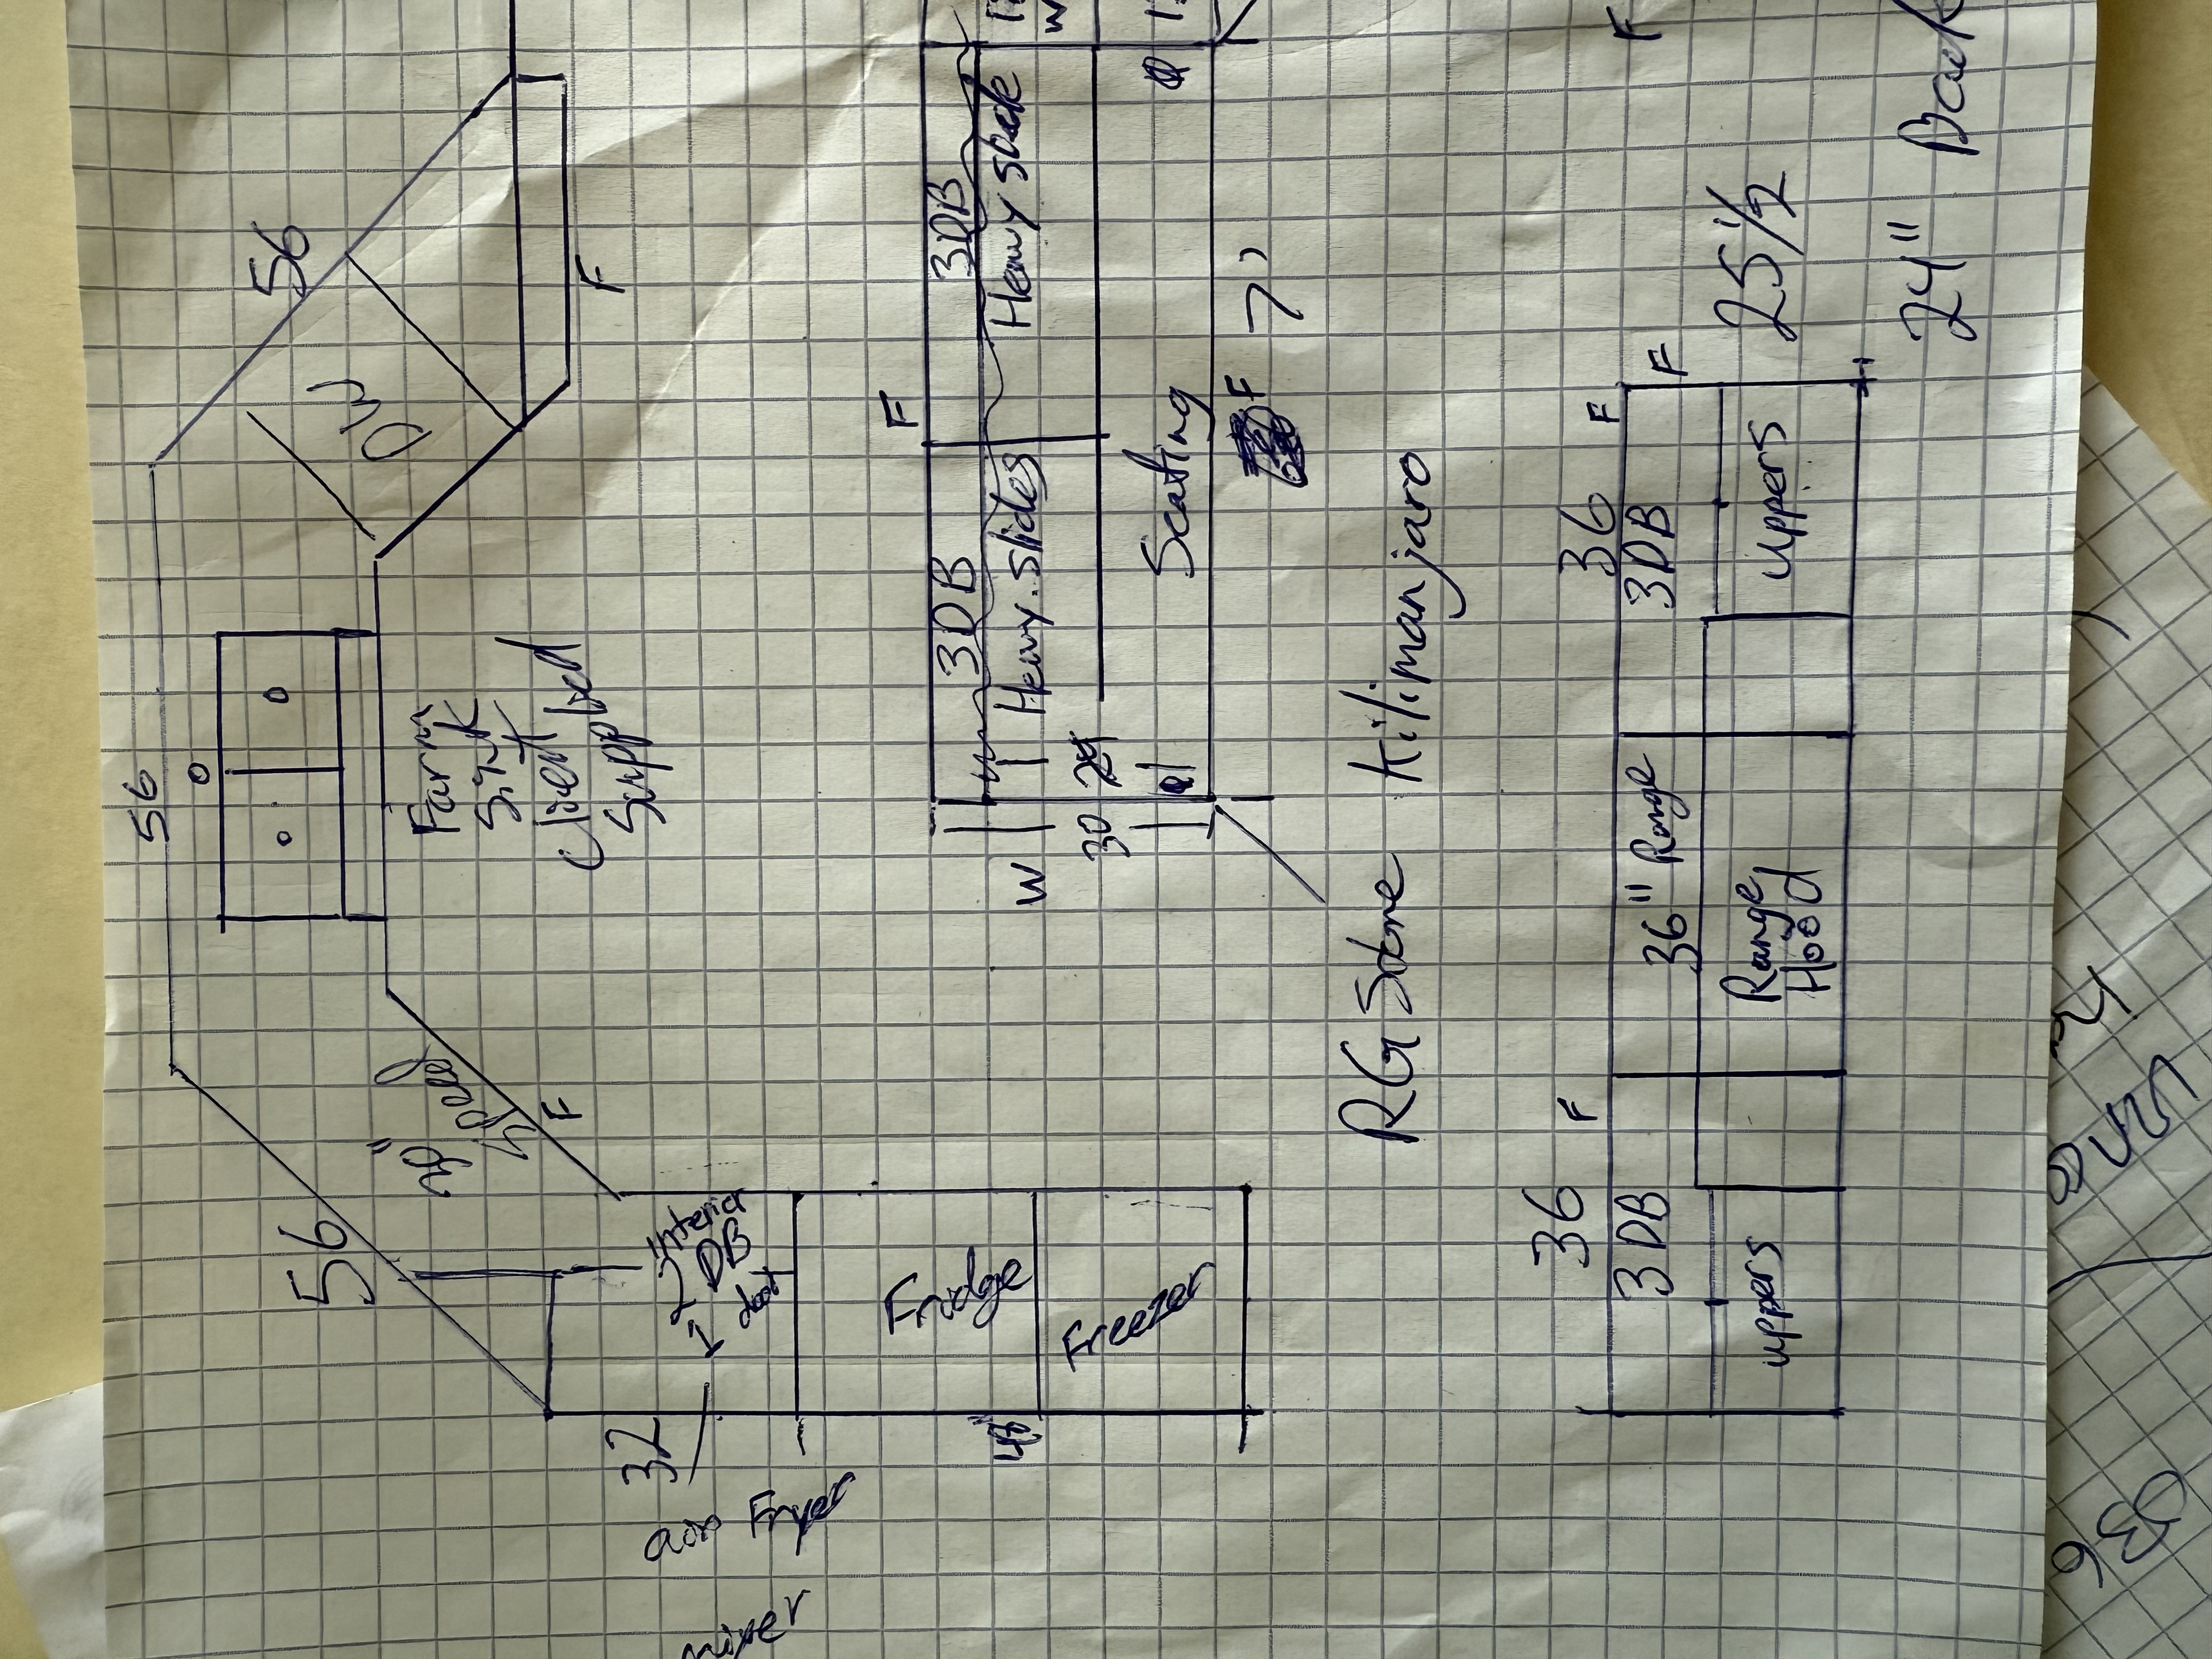 56
56
56
DW
F
Farm
Sink
Client
Supplied
20"
Speed
F
32
22" interior
DB
aor Fryer
mixer
Fridge
Freezer
48"
F
3DB
3DB
Heavy slides
Heavy slide
W
30
Seating
F
7'
RG Stone Kilimanjaro
36
F
3DB
uppers
36" Range
Range
Hood
36
F
3DB
uppers
F
25 1/2
24"
F